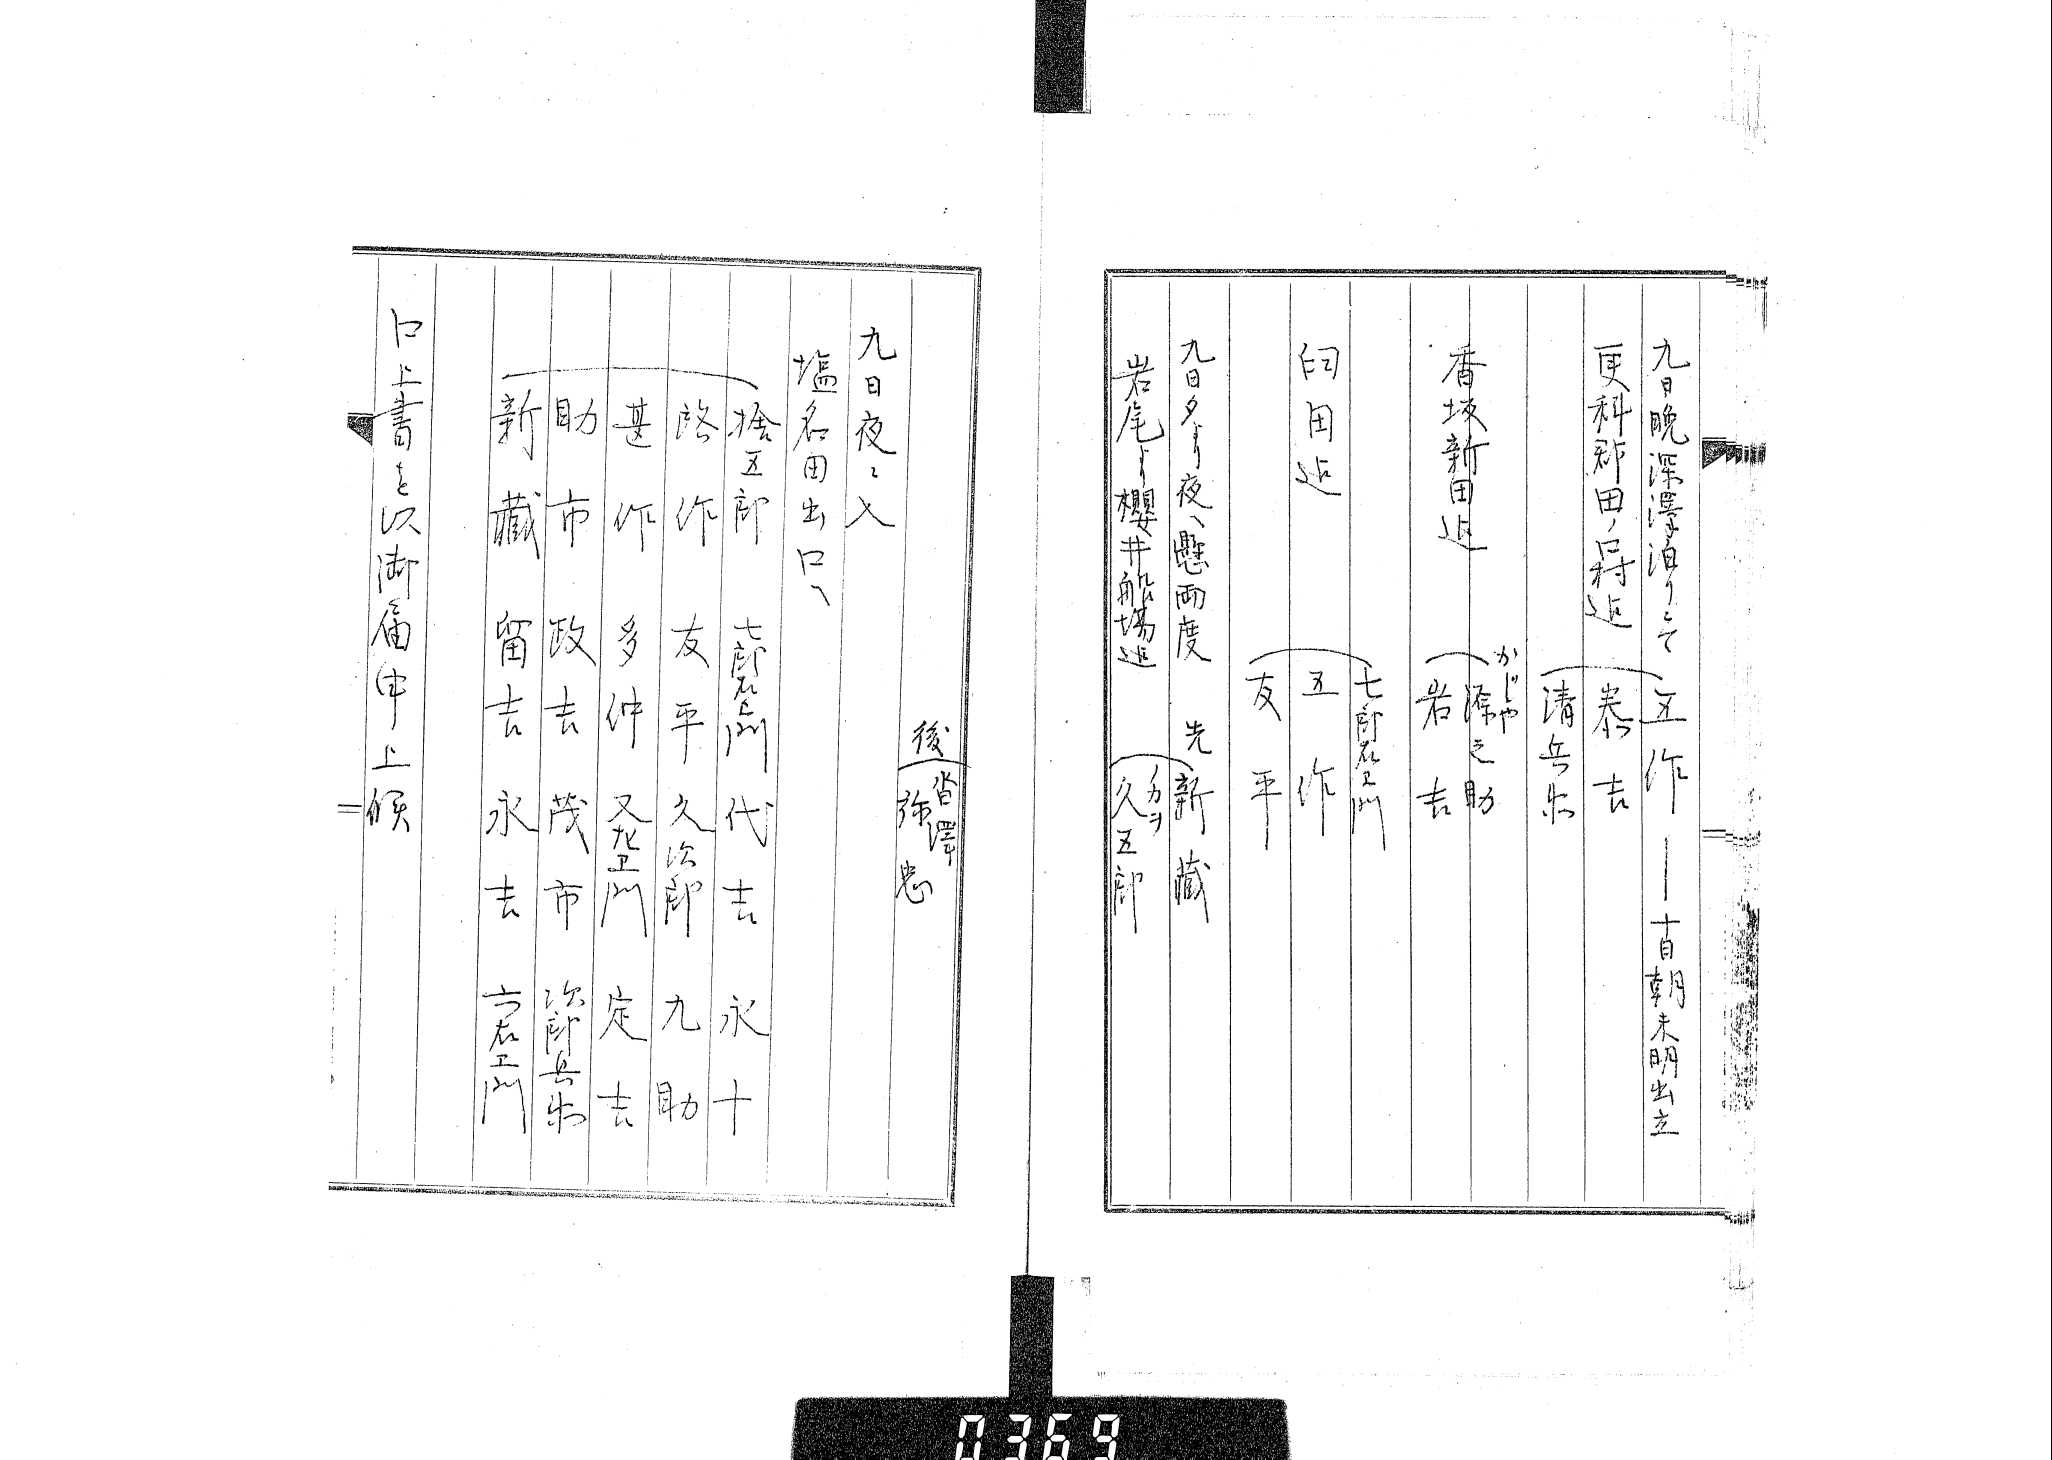 九日晩深澤泊りニて 五作 ― 十日朝未明出立
更科郡田ノ口村迄 泰吉
清兵衛
かじや
香坂新田迄 之助
岩吉
七郎右衛門
臼田迄 五作
友平
九日夕より夜へ懸両度 先 新藏
岩尾より櫻井船場迄 久五郎
後 沓澤
弥忠
九日夜ニ入
塩名田出口へ
捨五郎 七郎右衛門 代吉 永十
路作 友平 久次郎 九助
甚作 多仲 又左衛門 定吉
助市 政吉 茂市 次郎兵衛
新藏 留吉 永吉 六右衛門
口上書を以御届申上候
0369